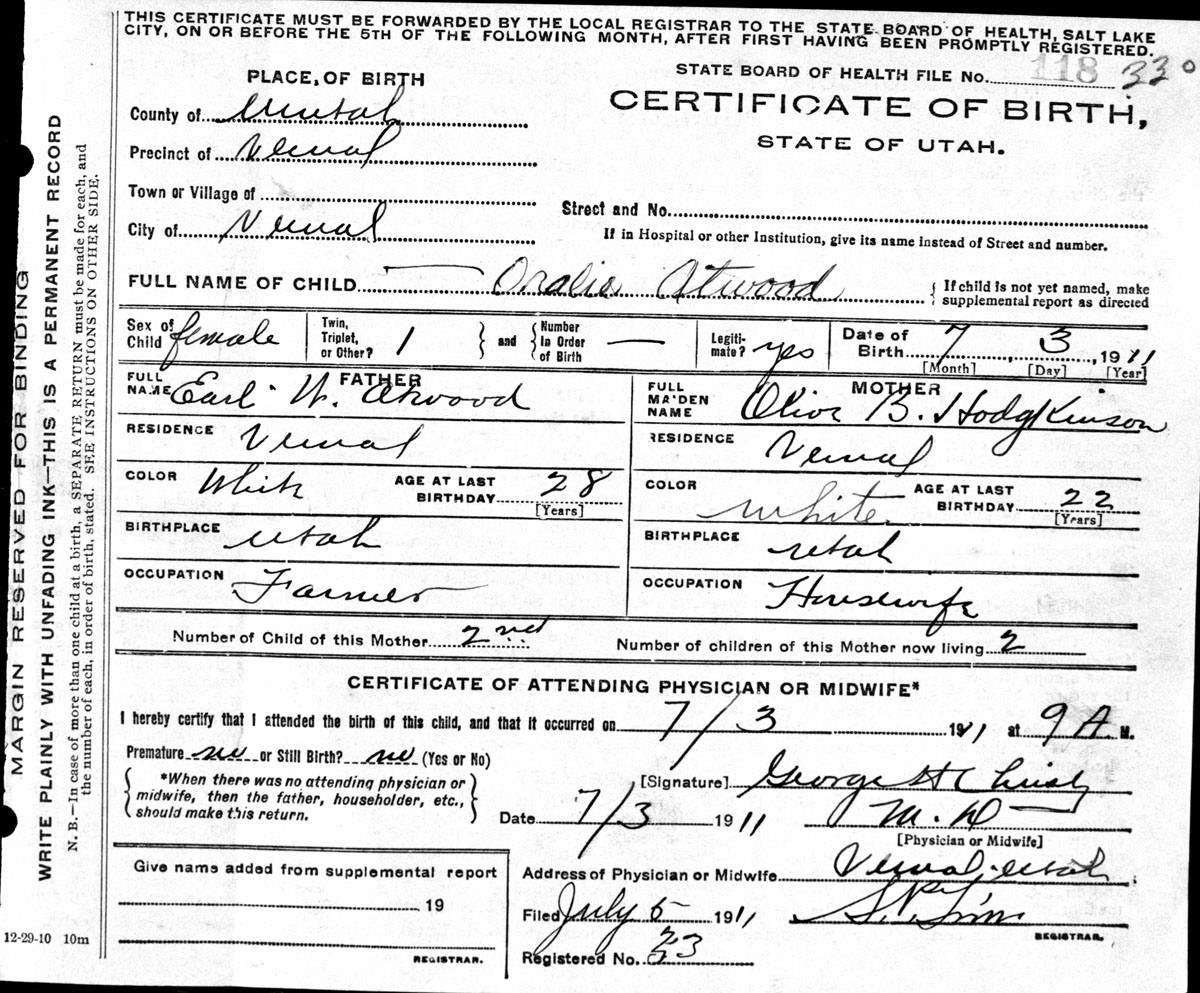 THIS CERTIFICATE MUST BE FORWARDED BY THE LOCAL REGISTRAR TO THE STATE BOARD OF HEALTH, SALT LAKE
CITY, ON OR BEFORE THE 5TH OF THE FOLLOWING MONTH, AFTER FIRST HAVING BEEN PROMPTLY REGISTERED.
STATE BOARD OF HEALTH FILE No. 118 330
CERTIFICATE OF BIRTH,
STATE OF UTAH.
PLACE OF BIRTH
County of Uintah
Precinct of Vernal
Town or Village of
City of Vernal
Street and No.
If in Hospital or other Institution, give its name instead of Street and number.
FULL NAME OF CHILD Oralie Atwood
{ If child is not yet named, make
supplemental report as directed
Sex of Child female
Twin, Triplet, or Other? 1
and Number In Order of Birth —
Legitimate? yes
Date of Birth 7, 3, 1911
[Month] [Day] [Year]
FATHER
FULL NAME Earl W. Atwood
RESIDENCE Vernal
COLOR White AGE AT LAST BIRTHDAY 28
[Years]
BIRTHPLACE Utah
OCCUPATION Farmer
MOTHER
FULL MAIDEN NAME Olive B. Hodgkinson
RESIDENCE Vernal
COLOR white AGE AT LAST BIRTHDAY 22
[Years]
BIRTHPLACE utah
OCCUPATION Housewife
Number of Child of this Mother 2nd Number of children of this Mother now living 2
CERTIFICATE OF ATTENDING PHYSICIAN OR MIDWIFE*
I hereby certify that I attended the birth of this child, and that it occurred on 7/3 1911 at 9 A M.
Premature no or Still Birth? no (Yes or No)
*When there was no attending physician or
midwife, then the father, householder, etc.,
should make this return.
[Signature] George H Christy
Date 7/3 1911 M. D
[Physician or Midwife]
Address of Physician or Midwife Vernal Utah
Filed July 5 1911
REGISTRAR.
Registered No. 23
Give name added from supplemental report
19
REGISTRAR.
12-29-10 10m
MARGIN RESERVED FOR BINDING
WRITE PLAINLY WITH UNFADING INK—THIS IS A PERMANENT RECORD
N. B.—In case of more than one child at a birth, a SEPARATE RETURN must be made for each, and
the number of each, in order of birth, stated. SEE INSTRUCTIONS ON OTHER SIDE.